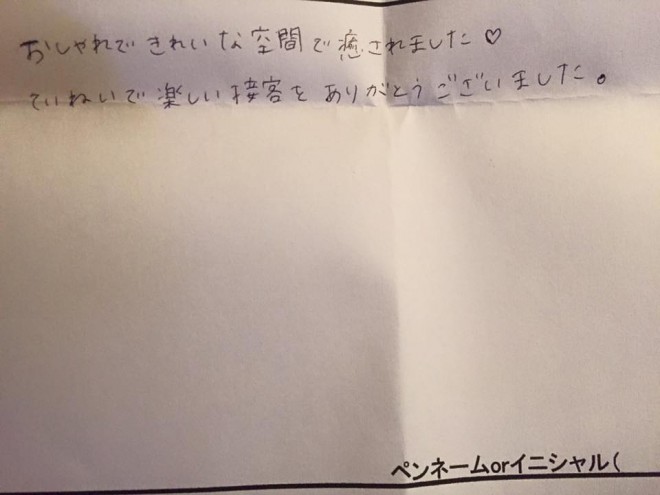 おしゃれできれいな空間で癒されました♡
ていねいで楽しい接客をありがとうございました。
ペンネームorイニシャル(